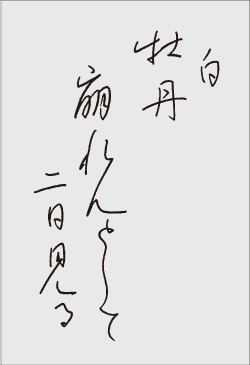 白牡丹
崩れんとして
二日見る